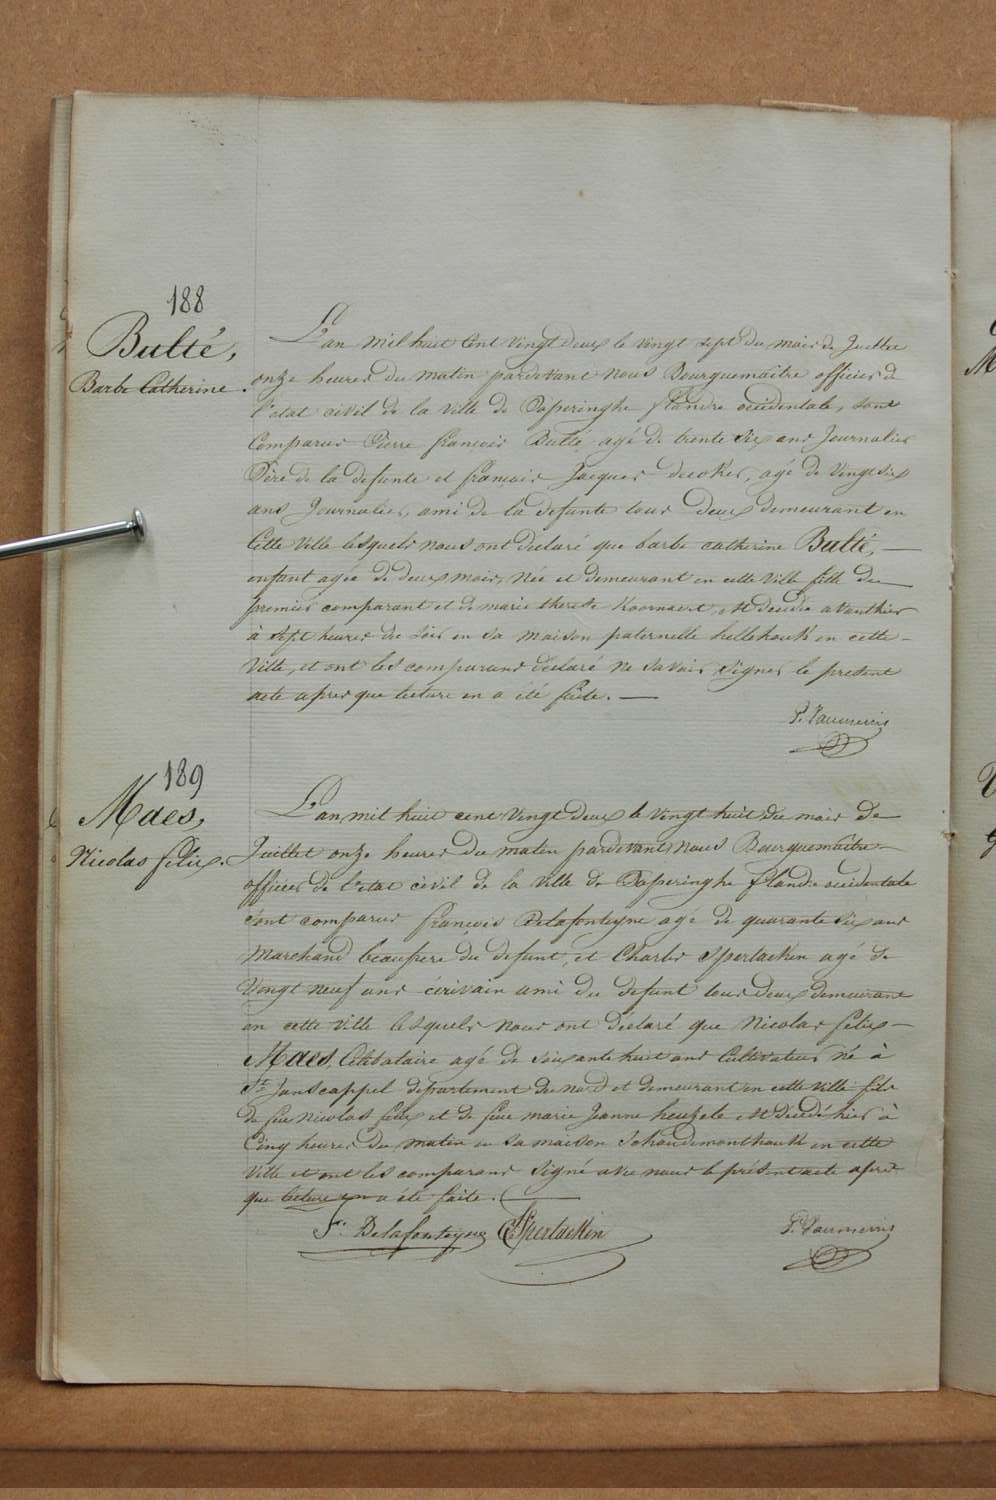 188
Bulté,
Barbe Catherine.
L'an mil huit Cent Vingt deux le vingt sept du mois de Juillet
onze heures du matin pardevant nous Bourguemaitre officier de
l'état civil de la ville de Poperinghe flandre occidentale, sont
Comparus Pierre françois Bulté agé de trente Six ans Journalier
Père de la defunte et françois Jacques decoker, agé de Vingt six
ans Journalier, ami de la defunte tous deux demeurant en
Cette Ville lesquels nous ont declaré que barbe catherine Bulté,
enfant agée de deux mois, Née et demeurant en cette Ville fille du
premier comparant et de marie therese Koornaert, est decedée avanthier
à Sept heures du soir en sa maison paternelle hellehouk en cette
Ville, et ont les comparans declaré ne savoir Signer le present
acte apres que lecture en a été faite.
P. Vanmerris
189
Maes,
Nicolas felix.
L'an mil huit cent Vingt deux le Vingt huit du mois de
Juillet onze heures du matin pardevant nous Bourguemaitre
officier de l'etat civil de la Ville de Poperinghe fland.e occidentale
Sont comparus françois Delafonteyne agé de quarante Six ans
Marchand beaufrere du defunt, et Charles Sperlaeken agé de
Vingt neuf ans écrivain ami du defunt tous deux demeurant
en cette Ville lesquels nous ont déclaré que Nicolas felix
Maes, Célibataire agé de Soixante huit ans Cultivateur né à
St. Janscappel département du nord et demeurant en cette Ville fils
de feu Nicolas felix et de feue marie Jeanne heuzele est decedé hier à
Cinq heures du matin en sa maison Schaudemonthouk en cette
Ville et ont les comparans Signé avec nous le présent acte apres
que lecture en a été faite.
F. Delafonteyne C Sperlaeken
P. Vanmerris